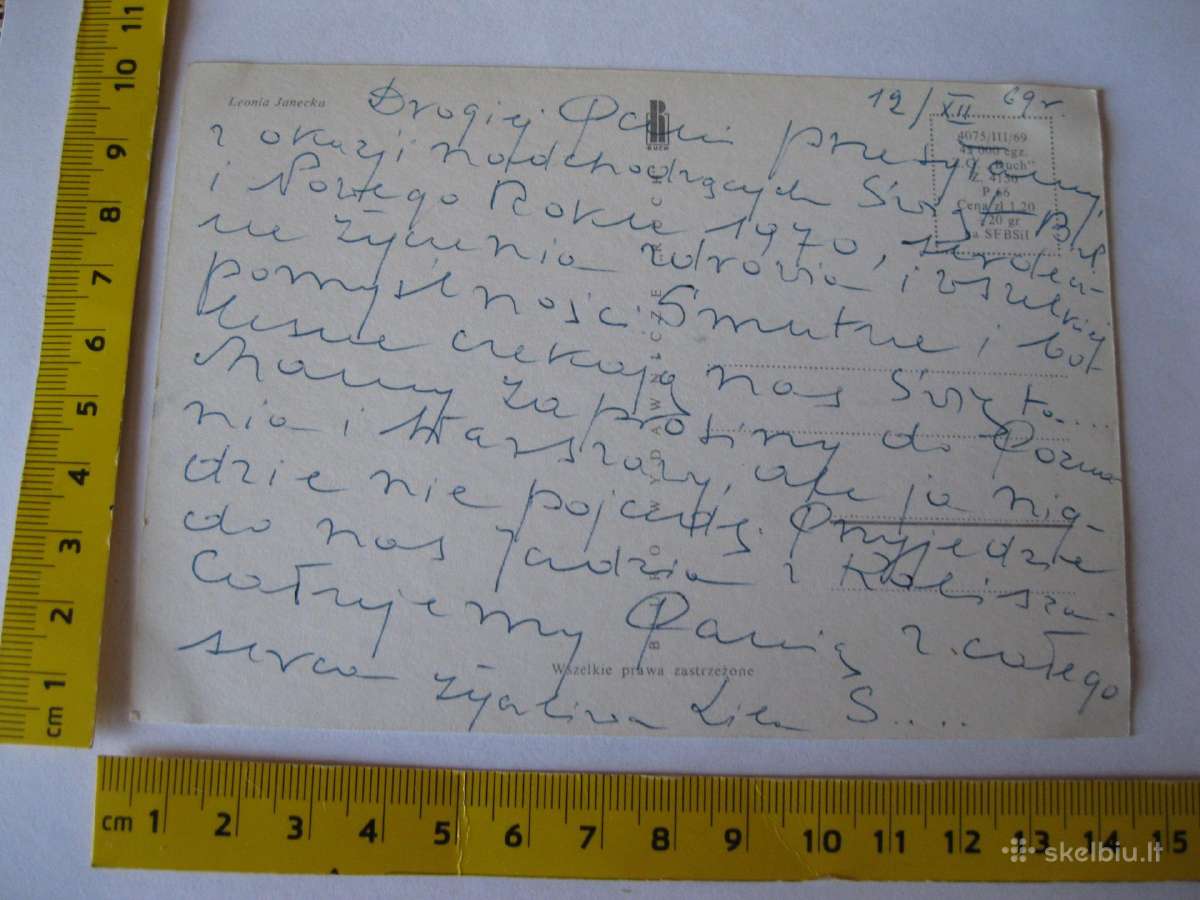 Leonia Janecka
12/XII 69 r.
RUCH
4075/III/69
"Ruch"
Z. 4150
P-66
Cena zł 1.20
+20 gr
na SFBSiI
Drogiej Pani przesyłamy,
z okazji nadchodzących Świąt B.N.
i Nowego Roku 1970, serdecz-
ne życzenia zdrowia i wszelkiej
pomyślności. Smutne i bo-
lesne czekają nas Święta....
Mamy zaprosiny do Pozna-
nia i Warszawy, ale ja nig-
dzie nie pojadę. Przyjedzie
do nas Jadzia z Kalisza.
Całujemy Panią z całego
serca życzliwa S....
BIURO WYDAWNICZE RUCH
Wszelkie prawa zastrzeżone
11
10
9
8
7
6
5
4
3
2
1
cm
cm 1 2 3 4 5 6 7 8 9 10 11 12 13 14 15
skelbiu.lt